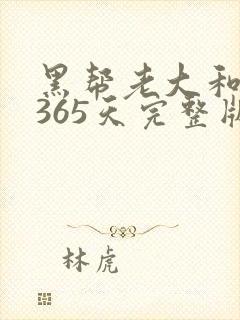 黑帮老大和
365天完整版
林虎